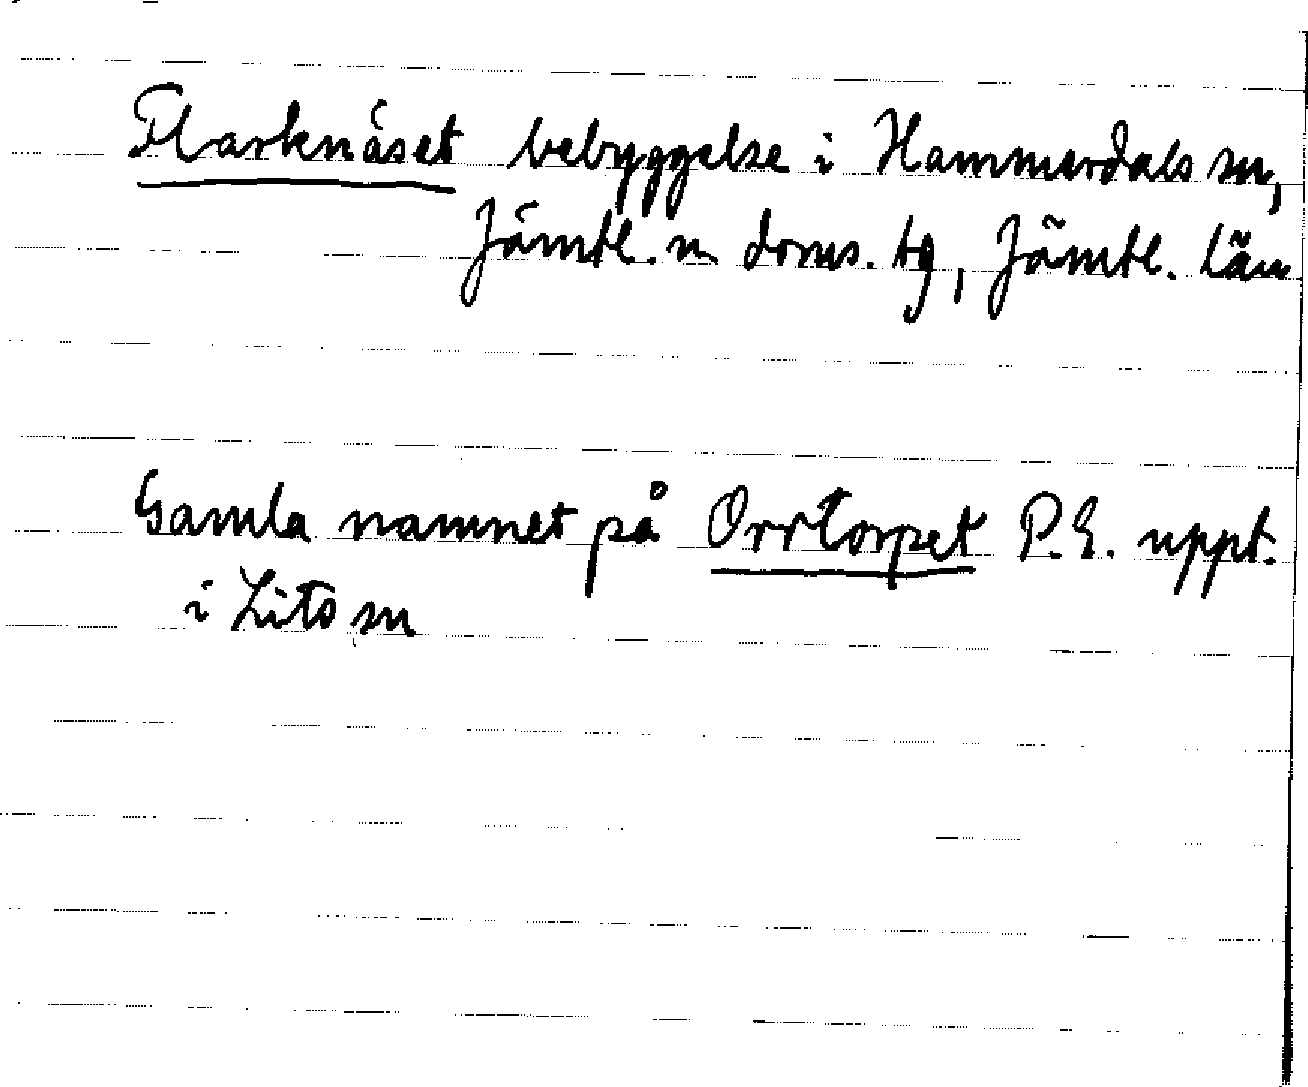 Flarknäset bebyggelse i Hammerdals sn,
Jämtl. n doms. tg, Jämtl. län
Gamla namnet på Orrtorpet P.E. uppt.
i Lits sn